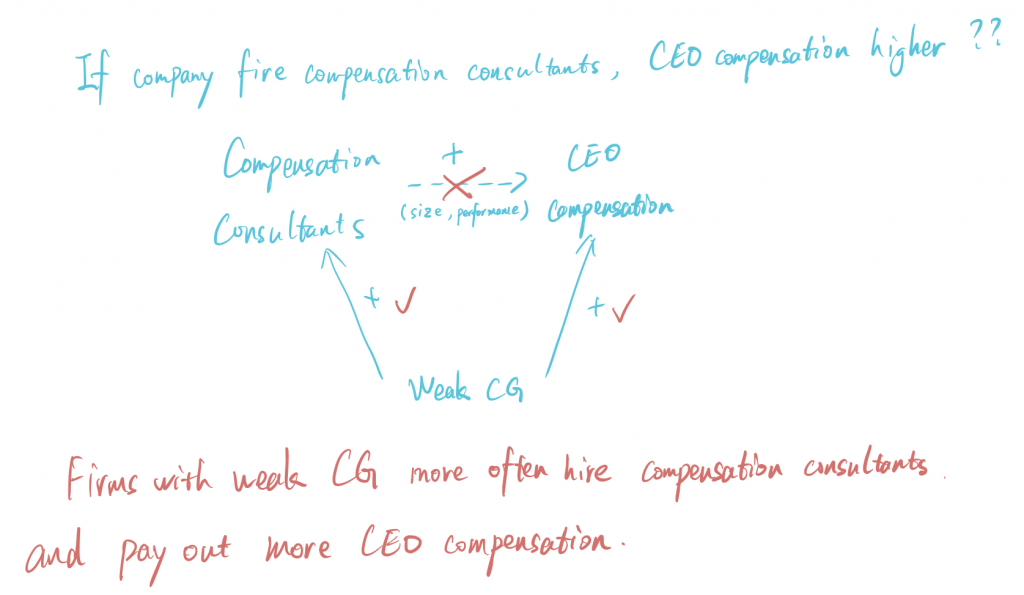 If company fire compensation consultants, CEO compensation higher ??
Compensation + CEO
(size, performance)
Consultants Compensation
+ ✓ + ✓
Weak CG
Firms with weak CG more often hire compensation consultants.
and pay out more CEO compensation.